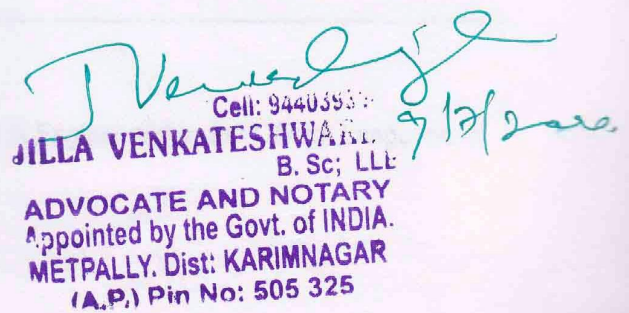 J Venkat
Cell: 9440393
JILLA VENKATESHWAR
B. Sc; LLB
ADVOCATE AND NOTARY
Appointed by the Govt. of INDIA.
METPALLY. Dist: KARIMNAGAR
(A.P.) Pin No: 505 325